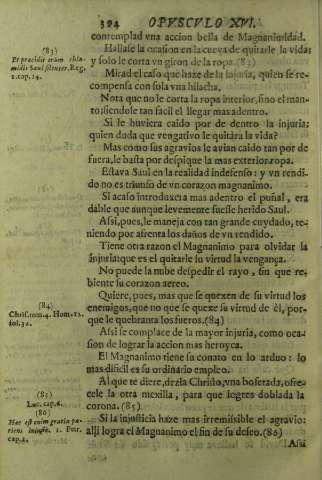 394 OPVSCVLO XVI.
contemplad vna accion bella de Magnanimidad.
Hallase la ocasion en la cueva de quitarle la vida;
y solo le corta vn giron de la ropa. (83)
(83)
Et præcidit oram chla-
midis Saul silenter. Reg.
1. cap. 24.
Mirad el caso que haze de la injuria, quien se re-
compensa con sola vna hilacha.
Nota que no le corta la ropa interior, sino el man-
to; siendole tan facil el llegar mas adentro.
Si le huviera caìdo por de dentro la injuria:
quien duda que vengativo le quitàra la vida?
Mas como sus agravios le avian caìdo tan por de
fuera, le basta por despique la mas exterior ropa.
Estava Saul en la realidad indefenso: y vn rendi-
do no es triunfo de vn corazon magnanimo.
Si acaso introduxera mas adentro el puñal, era
dable que aunque levemente fuesse herido Saul.
Assi, pues, le maneja con tan grande cuydado, te-
niendo por afrenta los daños de vn rendido.
Tiene otra razon el Magnanimo para olvidar la
injuria; que es el quitarle su virtud la vengança.
No puede la nube despedir el rayo, sin que re-
biente su corazon aereo.
Quiere, pues, mas que se quexen de su virtud los
enemigos, que no que se quexe su virtud de èl, por-
que le quebranta los fueros. (84)
(84)
Chris. tom. 4. Hom. 12.
fol. 32.
Assi se complace de la mayor injuria, como oca-
sion de lograr la accion mas heroyca.
El Magnanimo tiene su conato en lo arduo: lo
mas dificil es su ordinario empleo.
Al que te diere, dezia Christo, vna bofetada, ofre-
cele la otra mexilla, para que logres doblada la
corona. (85)
(85)
Luc. cap. 6.
(86)
Hæc est enim gratia pa-
tiens iniustè. 1. Petr.
cap. 2.
Si la injusticia haze mas irremissible el agravio:
assi logra el Magnanimo el fin de su deseo. (86)
Assi